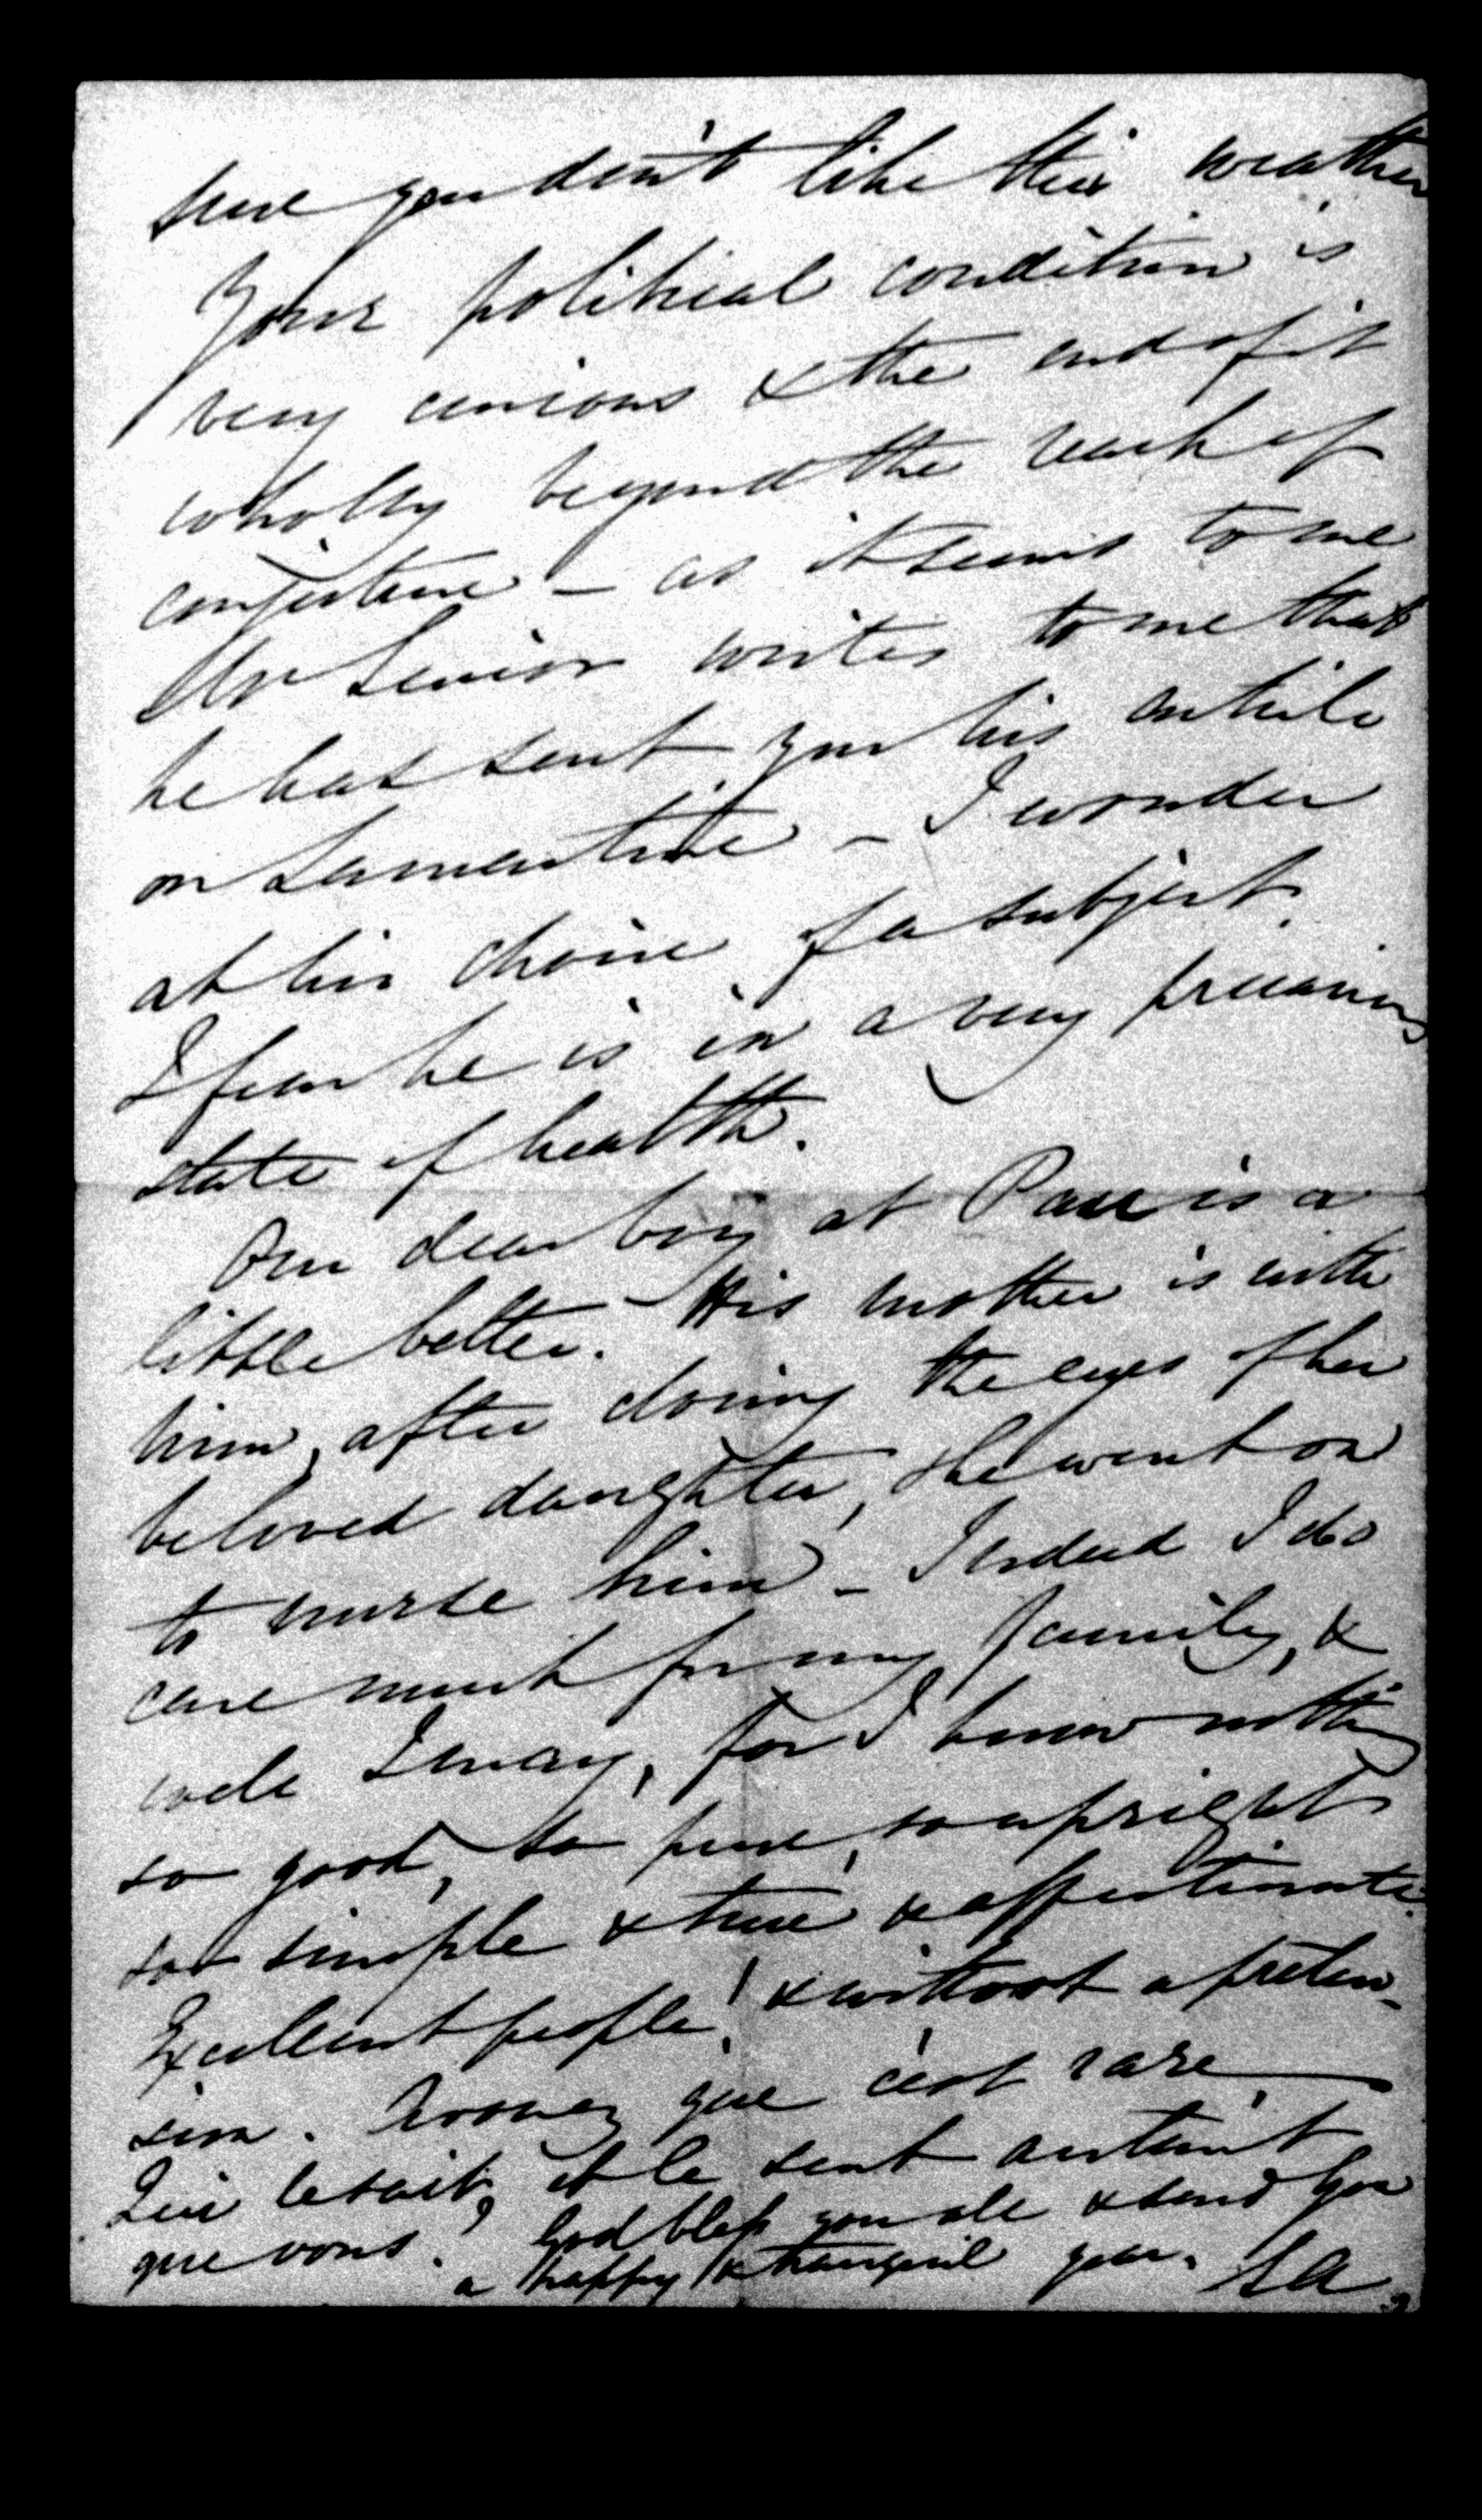 sure you don't like this weather
Your political condition is
very curious & the end of it
wholly beyond the reach of
conjecture – as it seems to me
Mr Senior writes to me that
he has sent you his article
on Lamartine – I wonder
at his choice of a subject.
I fear he is in a very precarious
state of health.
Our dear boy at Pau is a
little better. His mother is with
him, after closing the eyes of her
beloved daughter, she went on
to nurse him – Indeed I do
care much for my family, &
well I may, for I know nothing
so good, so pure, so upright
so simple & true & affectionate.
Excellent people! & without a preten-
sion. Avouez que c'est rare
Qui le sait, et le sent autant
que vous? God bless you all & send you
a happy & tranquil year. SA